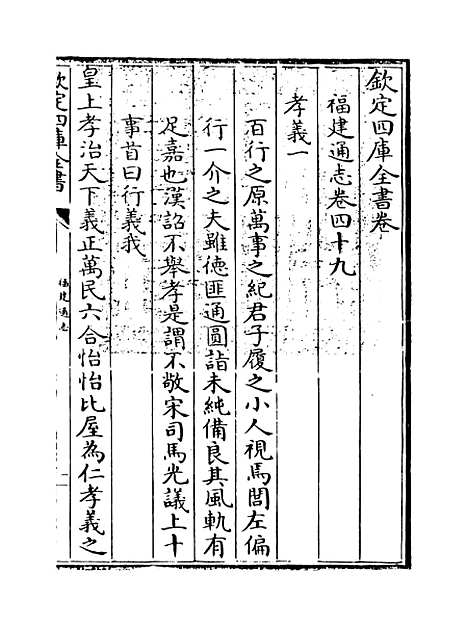 欽定四庫全書卷
福建通志卷四十九
孝義一
百行之原萬事之紀君子履之小人視焉閭左偏
行一介之夫雖德匪通圓詣未純備良其風軌有
足嘉也漢詔不舉孝是謂不敬宋司馬光議上十
事首曰行義我
皇上孝治天下義正萬民六合怡怡比屋為仁孝義之
欽定四庫全書
福建通志
一